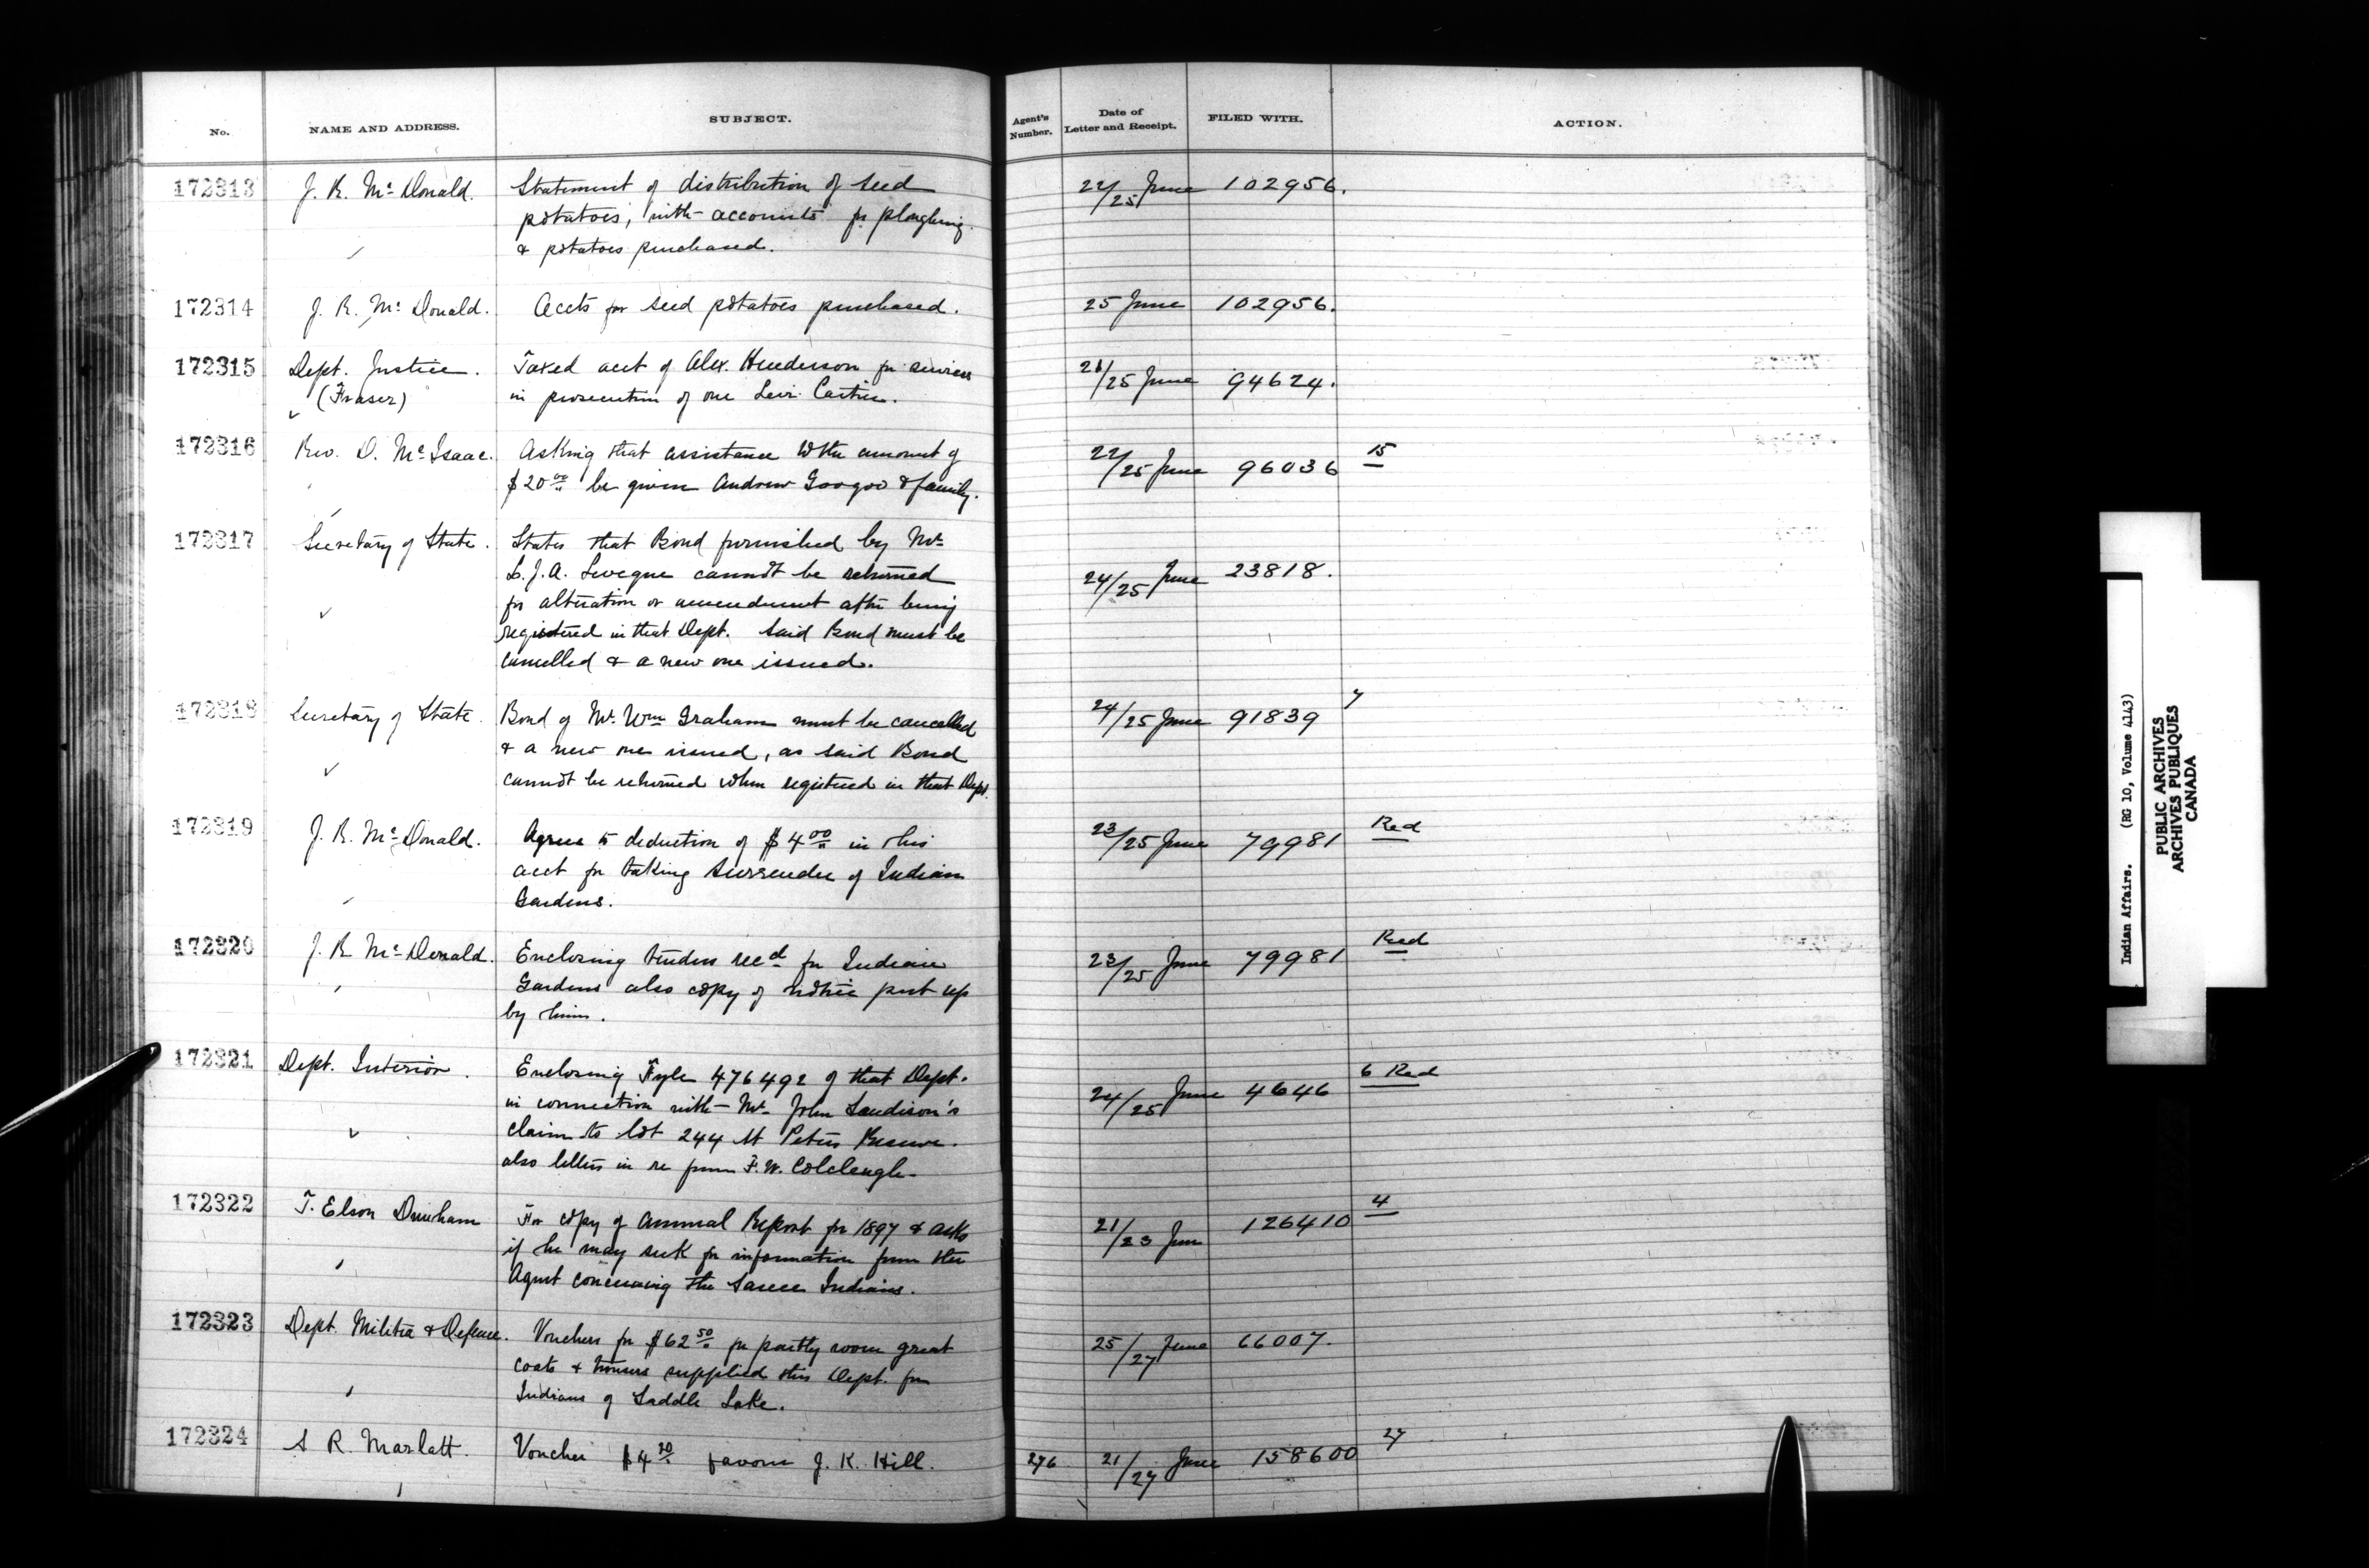 No. NAME AND ADDRESS. SUBJECT. Agent's Number. Date of Letter and Receipt. FILED WITH. ACTION.
172313 J. R. Mc Donald. Statement of distribution of seed 22/25 June 102956.
potatoes, with accounts for ploughing
& potatoes purchased.
172314 J. R. Mc Donald. Accts for seed potatoes purchased. 25 June 102956.
172315 Dept. Justice. Taxed acct of Alex. Henderson for services 21/25 June 94624.
(Fraser) in prosecution of one Levi Cartier.
172316 Rev. D. McIsaac. Asking that assistance to the amount of 22/25 June 96036 15
$20 00 be given Andrew Googoo & family.
172317 Secretary of State. States that Bond furnished by Mr
L. J. A. Leveque cannot be returned 24/25 June 23818.
for alteration or amendment after being
registered in that Dept. Said Bond must be
cancelled & a new one issued.
172318 Secretary of State. Bond of Mr. Wm Graham must be cancelled 24/25 June 91839 7
& a new one issued, as said Bond
cannot be returned when registered in that Dept.
172319 J. R. McDonald. Agrees to deduction of $4 00 in his 23/25 June 79981 Red
acct for taking surrender of Indian
Gardens.
172320 J. R. McDonald. Enclosing tenders recd for Indian 23/25 June 79981 Red
Gardens also copy of notice put up
by him.
172321 Dept. Interior. Enclosing Fyle 476492 of that Dept. 24/25 June 4646 6 Red
in connection with Mr. John Sandison's
claim to lot 244 St Peters Reserve.
also letters in re from F. W. Colcleugh.
172322 T. Elson Durham For copy of Annual Report for 1897 & asks 21/23 June 126410 4
if he may seek for information from the
Agent concerning the Sarcee Indians.
172323 Dept. Militia & Defence. Vouchers for $62 50 for partly worn great 25/27 June 66007.
coats & trousers supplied this Dept. for
Indians of Saddle Lake.
172324 S. R. Marlatt. Voucher $4 20 favour J. K. Hill. 276 21/27 June 158600 27
Indian Affairs. (RG 10, Volume 4143)
PUBLIC ARCHIVES
ARCHIVES PUBLIQUES
CANADA